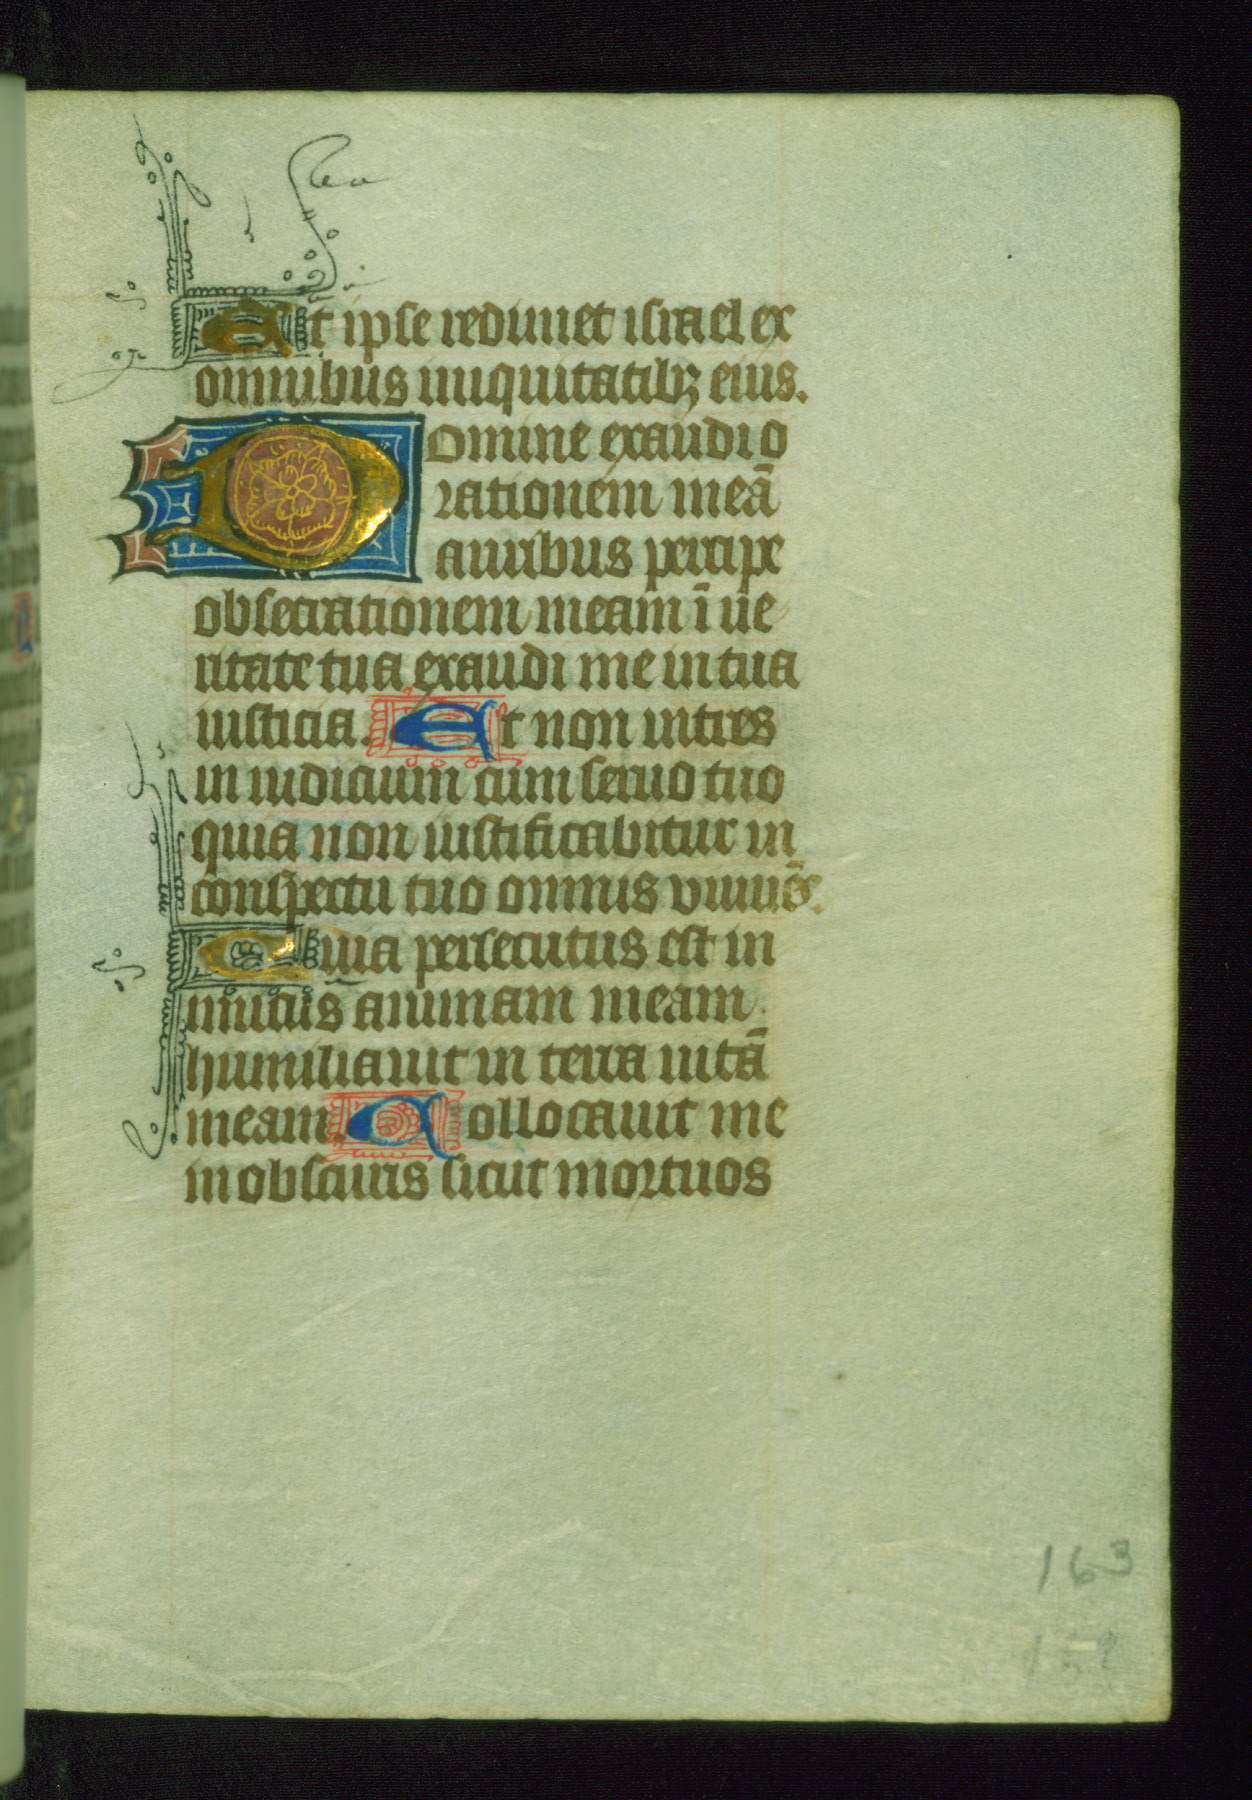 Et ipse redimet israel ex
omnibus iniquitatibꝫ eius.
Domine exaudi o
rationem meā
auribus percipe
obsecrationem meam ī ue
ritate tua exaudi me in tua
iusticia. Et non intres
in iudicium cum seruo tuo
quia non iustificabitur in
conspectu tuo omnis viuēs.
Quia persecutus est in
imicus animam meam
humiliauit in terra uitā
meam. Collocauit me
in obscuris sicut mortuos
163